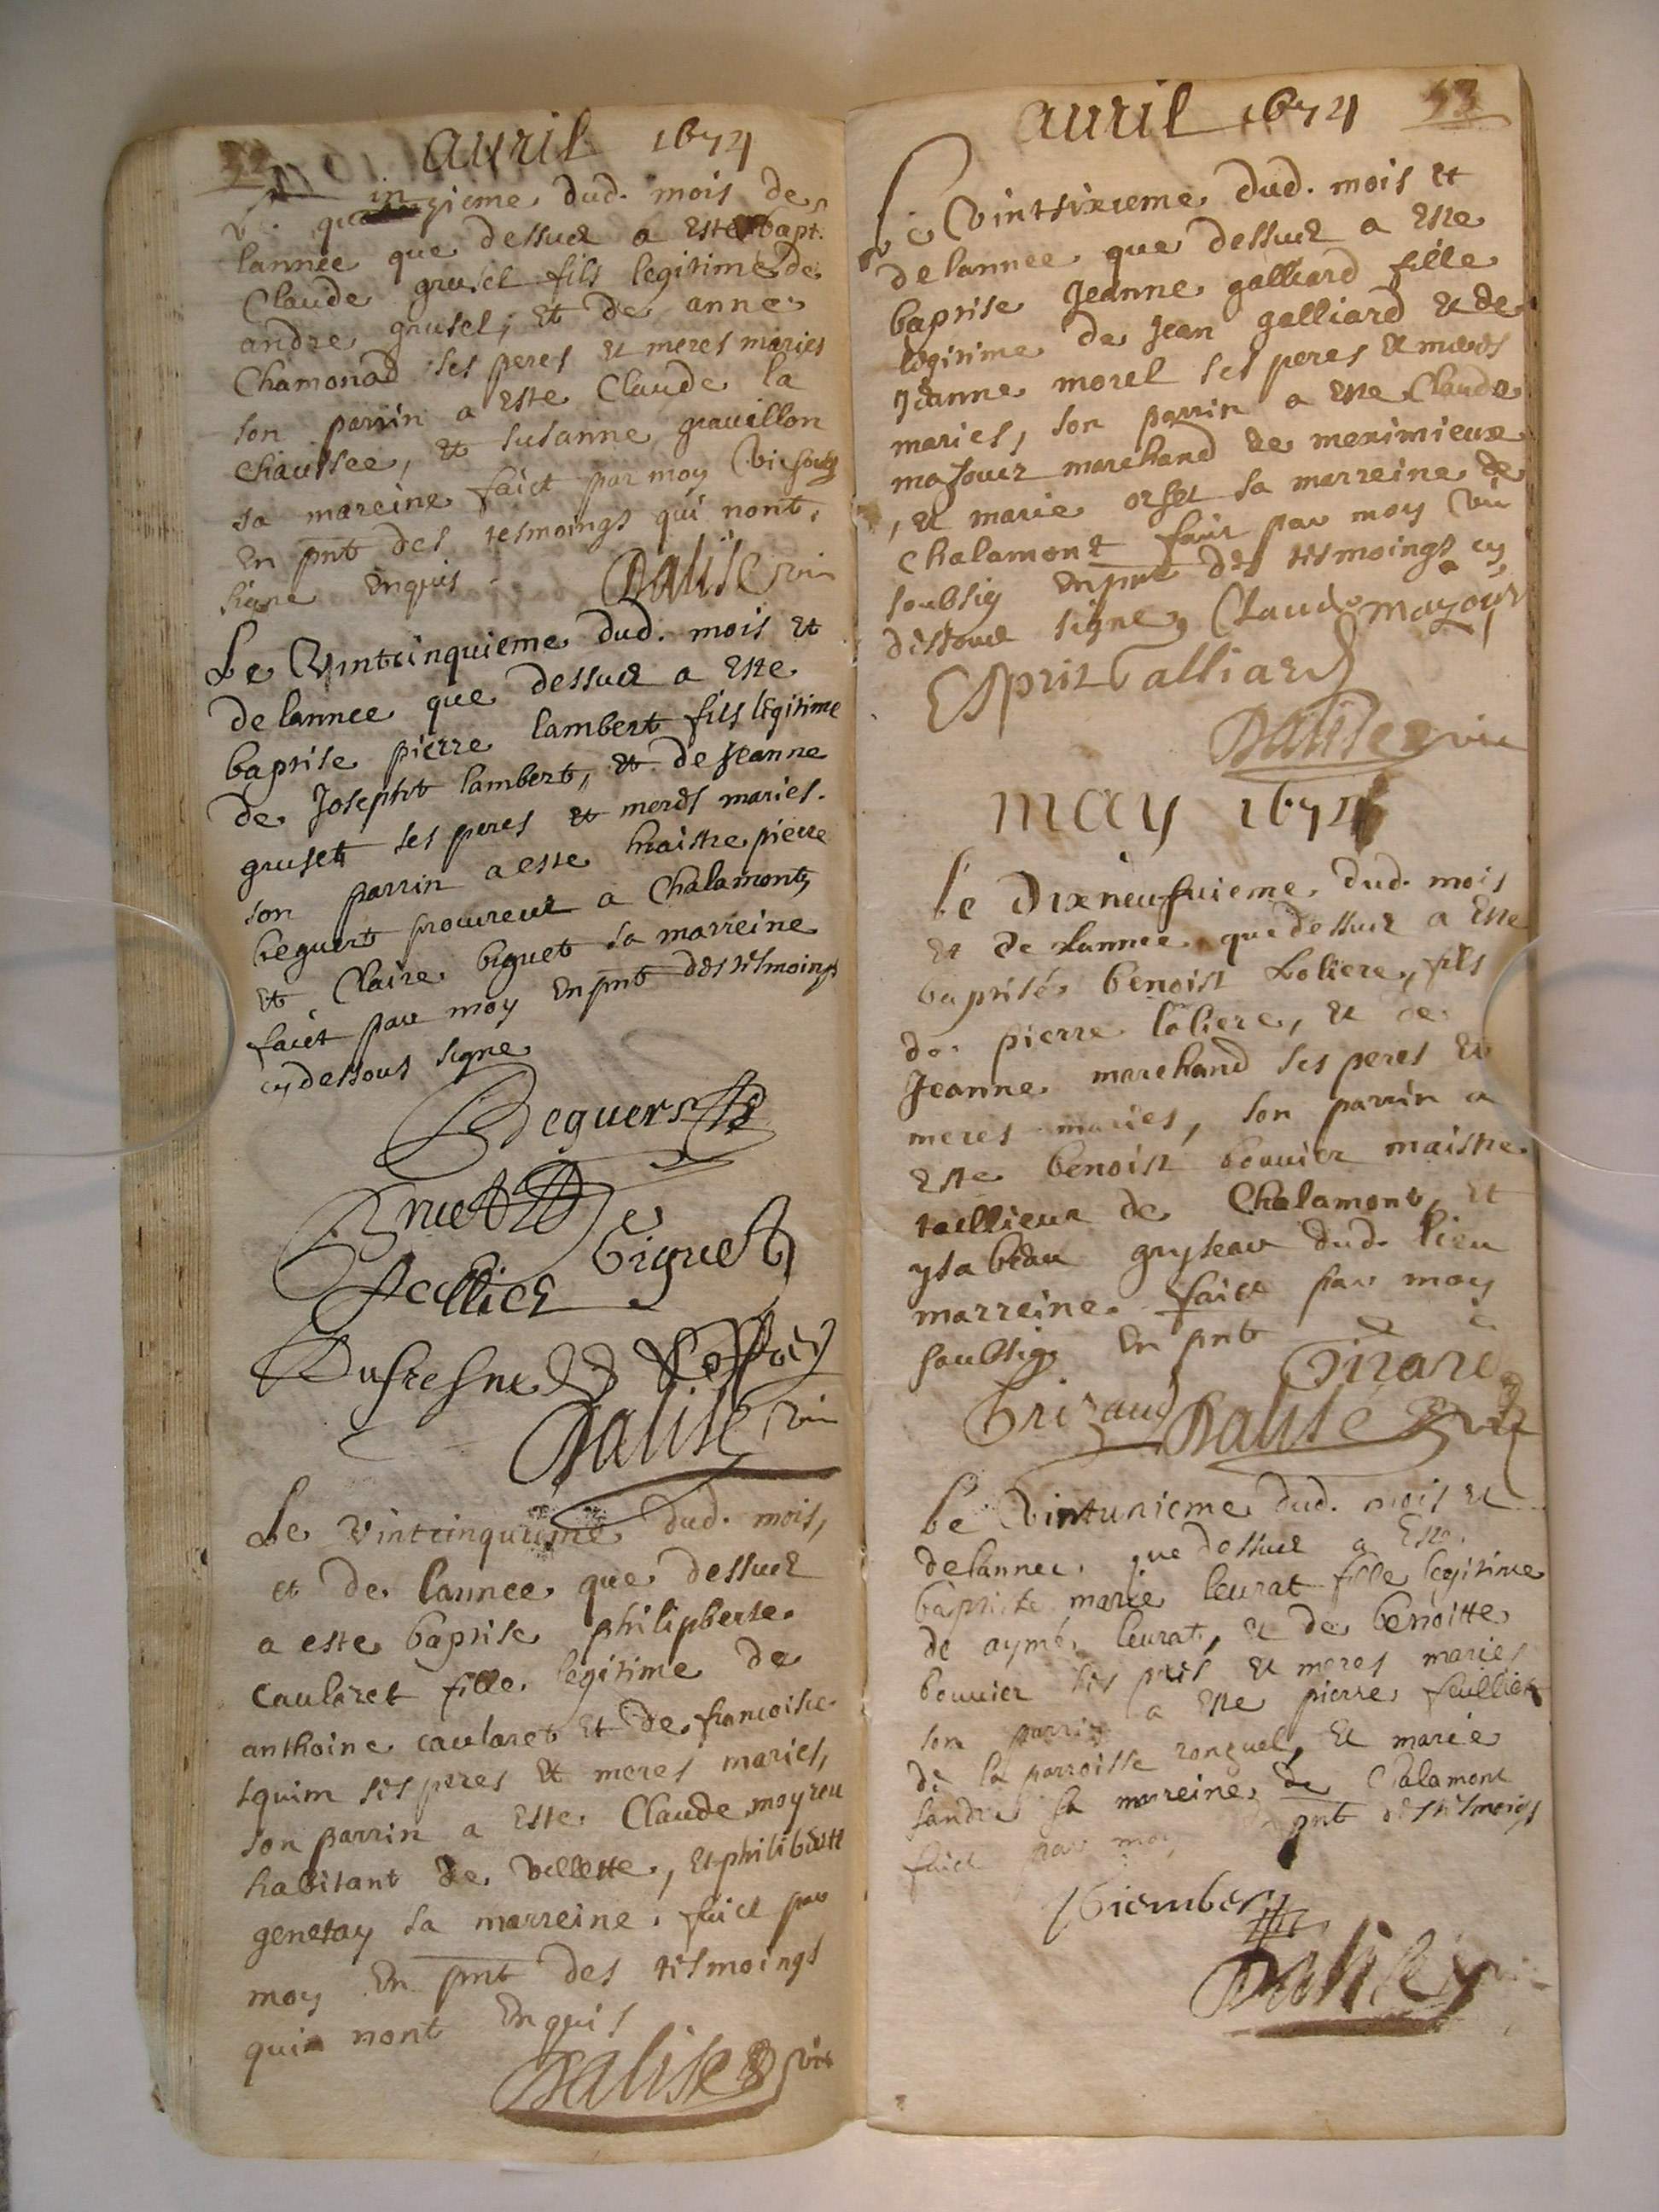 avril 1674
quinzieme dud. mois de
lannee que dessus a este bapt.
Claude grusel fils legitime de
andre grusel, et de anne
Chamonad ses peres et meres maries
son parrin a este Claude la
chaussee, et susanne grauillon
sa mareine faict par moy vic soubz
en pnt des tesmoings qui nont
signe enquis. Dalise vic
Le Vintcinquieme dud. mois et
de lannee que dessus a este
baptise pierre lambert fils legitime
de Josepht lambert, et de Jeanne
gruset ses peres et meres maries.
son parrin a este maistre pierre
beguert procureur a Chalamont,
et Claire biguet sa marreine
faict par moy en pnt des tesmoings
cy dessous signe
Beguerst
Bruet
Biguet
feallier
Dufresne
Dalise vic
Le vintcinquieme dud. mois,
et de lannee que dessus
a este baptise philipberte
caularet fille legitime de
anthoine caularet et de francoise
squim ses peres et meres maries,
son parrin a este Claude moyreu
habitant de villette, et philiberte
genetay sa marreine. faict par
moy en pnt des tesmoings
qui nont enquis
Dalise vic
avril 1674 53
Le Vintsixieme dud. mois et
de lannee que dessus a este
baptise Jeanne galliard fille
legitime de Jean galliard et de
Jeanne morel ses peres et meres
maries, son parrin a este Claude
masouer marchand de meximieux
, et marie orset sa marreine de
Chalamont faict par moy vic
soubsig en pnt des tesmoings cy
dessous signe, Claude mazoyer
Esprit Galliard
Dalise vic
may 1674
le dixneufuieme dud. mois
et de lannee que dessus a este
baptisé benoist Loliere, fils
de pierre loliere, et de
Jeanne marchand ses peres et
meres maries, son parrin a
este benoist bouuier maistre
taillieur de Chalamont, et
ysabeau gryseau dud. lieu
marreine. faict par moy
soubsig en pnt
Girard
Brizaud Dalise vic
Le Vintunieme dud. mois et
de lannee que dessus a este
baptiste marie leurat fille legitime
de aymé leurat, et de benoitte
bouuier ses pres et meres maries
son parrin a este pierre feulliet
de la parroisse ronzuel, et marie
sandre sa marreine de Chalamont
faict par moy en pnt des tesmoings
Giember
Dalise vic